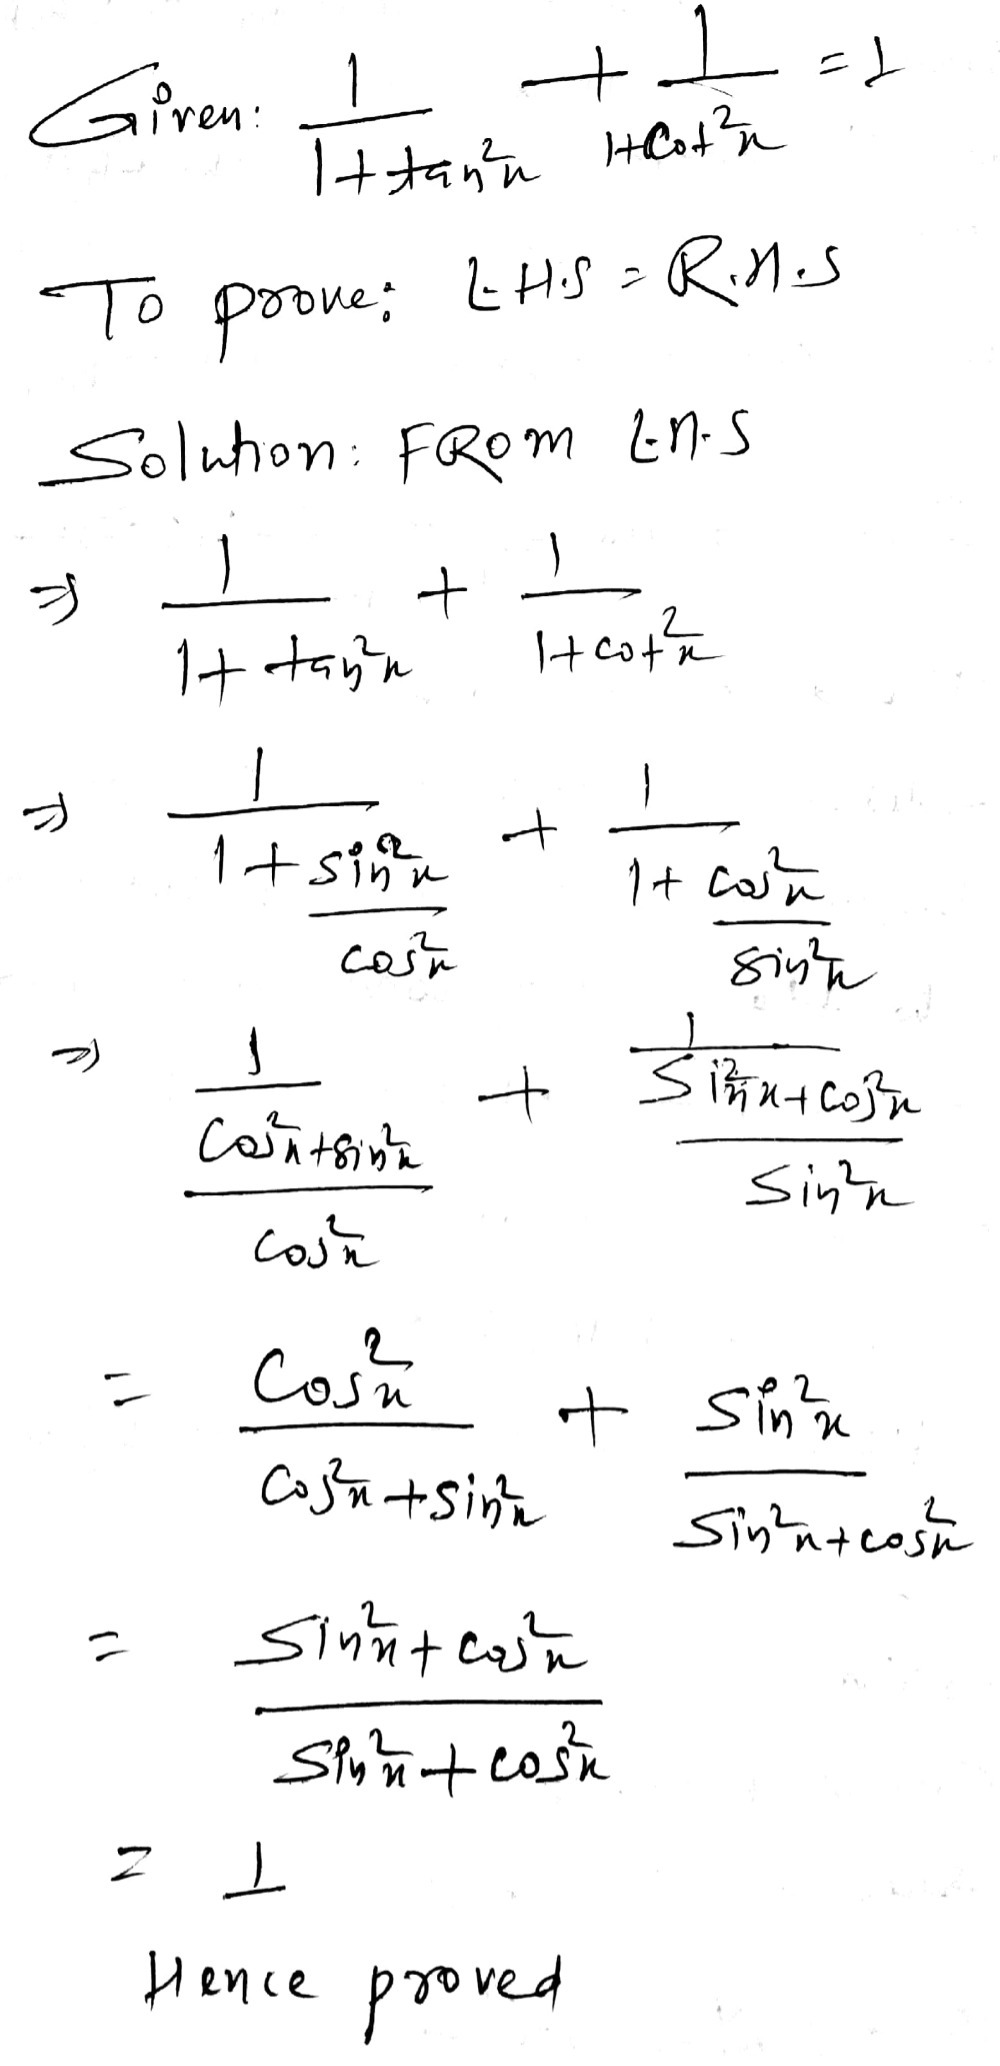 Given: 1/(1+tan²x) + 1/(1+cot²x) = 1
To prove: L.H.S = R.H.S
Solution: FROM L.H.S
⇒ 1/(1+tan²x) + 1/(1+cot²x)
⇒ 1/(1+sin²x/cos²x) + 1/(1+cos²x/sin²x)
⇒ 1/((cos²x+sin²x)/cos²x) + 1/((sin²x+cos²x)/sin²x)
= cos²x/(cos²x+sin²x) + sin²x/(sin²x+cos²x)
= (sin²x+cos²x)/(sin²x+cos²x)
= 1
Hence proved